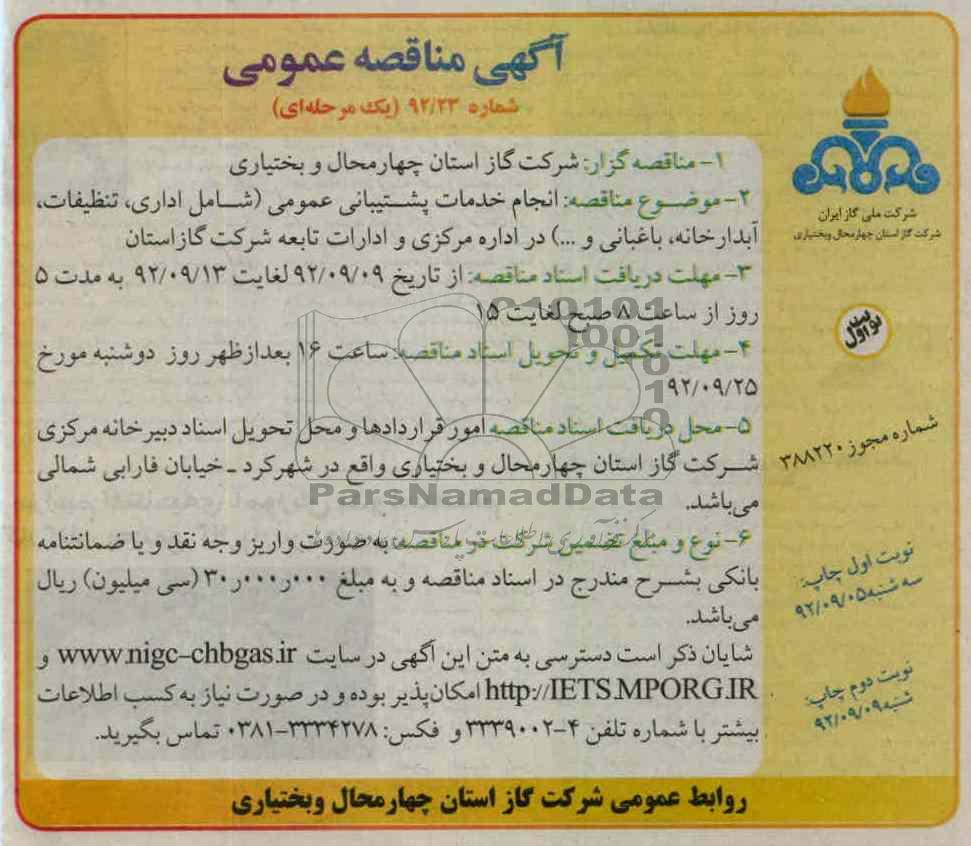 آگهی مناقصه عمومی
شماره ۹۲/۲۳ (یک مرحله‌ای)
۱- مناقصه گزار: شرکت گاز استان چهارمحال و بختیاری
۲- موضوع مناقصه: انجام خدمات پشتیبانی عمومی (شامل اداری، تنظیفات،
آبدارخانه، باغبانی و ...) در اداره مرکزی و ادارات تابعه شرکت گاز استان
۳- مهلت دریافت اسناد مناقصه: از تاریخ ۹۲/۰۹/۰۹ لغایت ۹۲/۰۹/۱۳ به مدت ۵
روز از ساعت ۸ صبح لغایت ۱۵
۴- مهلت تکمیل و تحویل اسناد مناقصه: ساعت ۱۶ بعدازظهر روز دوشنبه مورخ
۹۲/۰۹/۲۵
۵- محل دریافت اسناد مناقصه امور قراردادها و محل تحویل اسناد دبیرخانه مرکزی
شرکت گاز استان چهارمحال و بختیاری واقع در شهرکرد - خیابان فارابی شمالی
می‌باشد.
۶- نوع و مبلغ تضمین شرکت در مناقصه: به صورت واریز وجه نقد و یا ضمانتنامه
بانکی بشرح مندرج در اسناد مناقصه و به مبلغ ۳۰ر۰۰۰ر۰۰۰ (سی میلیون) ریال
می‌باشد.
شایان ذکر است دسترسی به متن این آگهی در سایت www.nigc-chbgas.ir و
http://IETS.MPORG.IR امکان‌پذیر بوده و در صورت نیاز به کسب اطلاعات
بیشتر با شماره تلفن ۴-۳۳۳۹۰۰۲ و فکس: ۳۳۳۴۲۷۸-۰۳۸۱ تماس بگیرید.
روابط عمومی شرکت گاز استان چهارمحال وبختیاری
شرکت ملی گاز ایران
شرکت گاز استان چهارمحال وبختیاری
نوبت اول
شماره مجوز ۳۸۸۲۲۰
نوبت اول چاپ:
سه شنبه ۹۲/۰۹/۰۵
نوبت دوم چاپ:
شنبه ۹۲/۰۹/۰۹
ParsNamadData